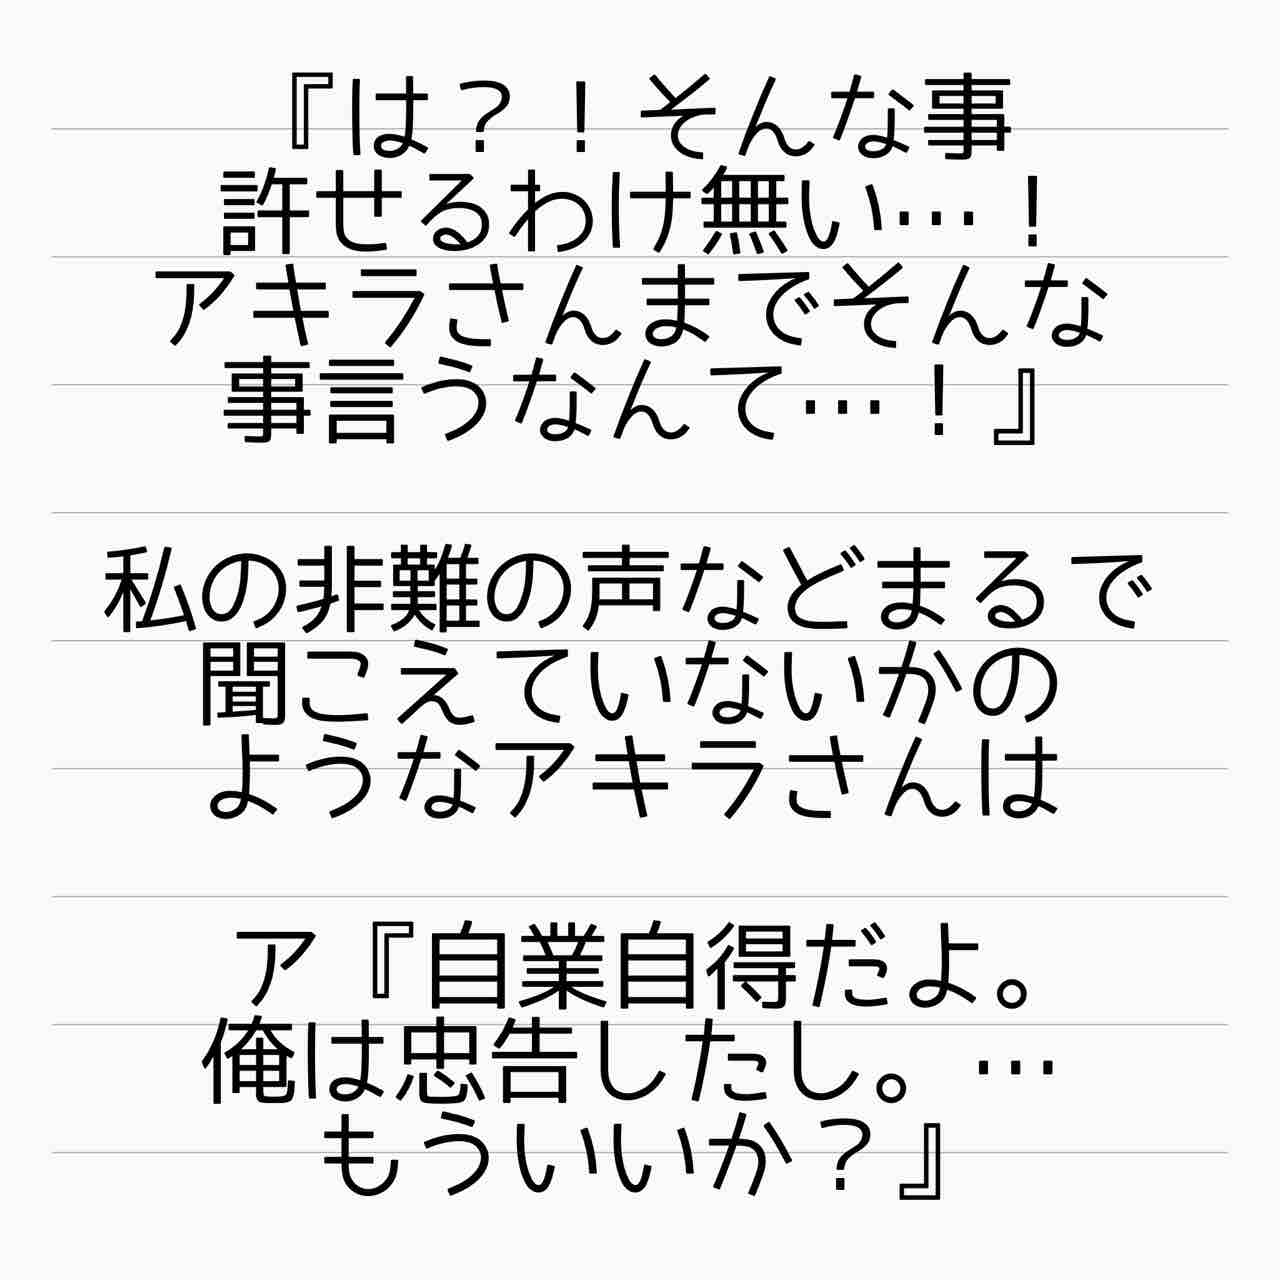 『は？！そんな事
許せるわけ無い…！
アキラさんまでそんな
事言うなんて…！』
私の非難の声などまるで
聞こえていないかの
ようなアキラさんは
ア『自業自得だよ。
俺は忠告したし。…
もういいか？』